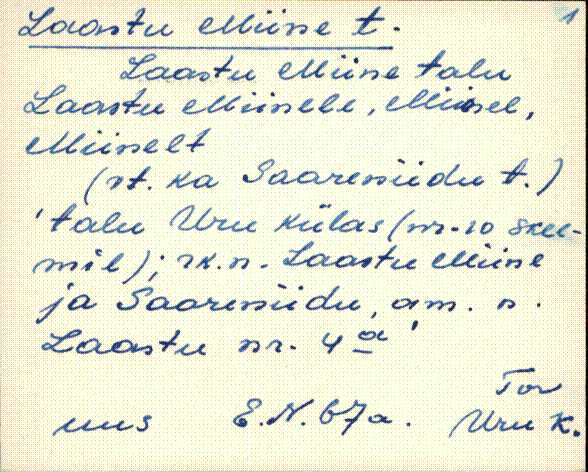 1
Laastu Miine t.
Laastu Miine talu
Laastu Miinele, Miinel,
Miinelt
(vt. ka Saareniidu t.)
'talu Uru külas (nr. 10 skee-
mil); rk. n. Laastu Miine
ja Saareniidu, am. n.
Laastu nr. 4a'
Tor
uus E.N. 67a. Uru k.